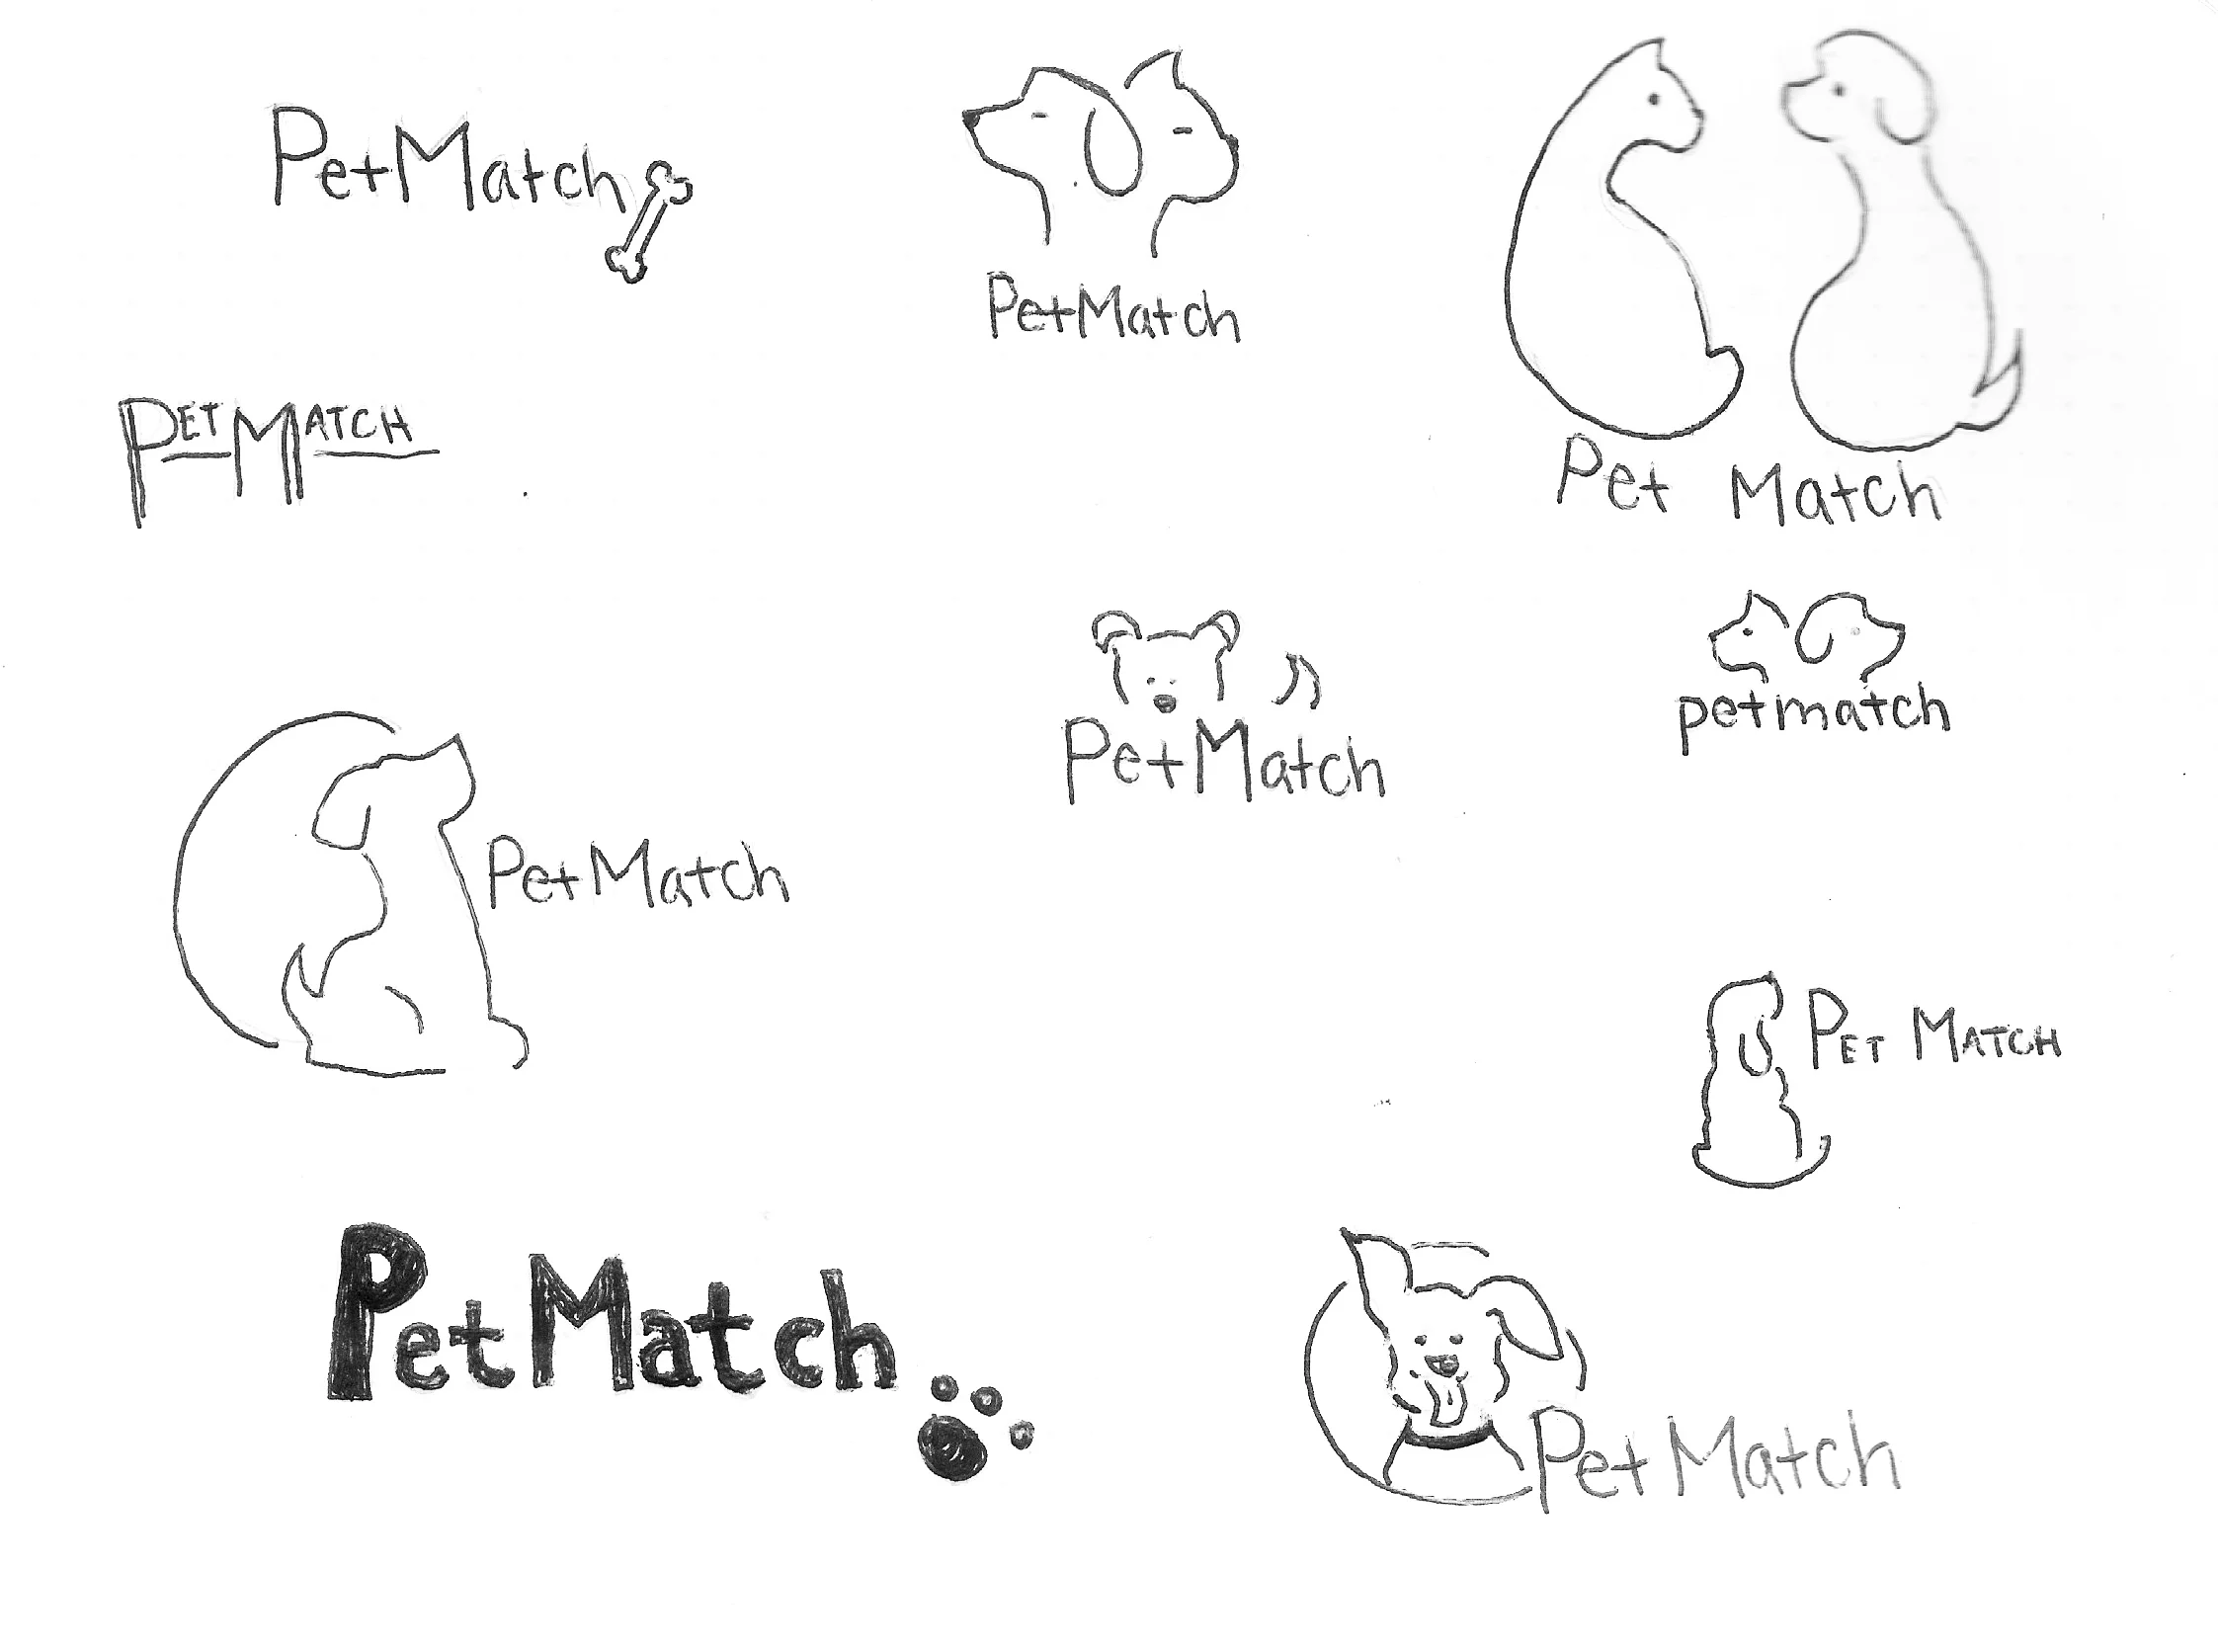 PetMatch
PetMatch
Pet Match
PETMATCH
PetMatch
petmatch
PetMatch
PET MATCH
PetMatch
PetMatch